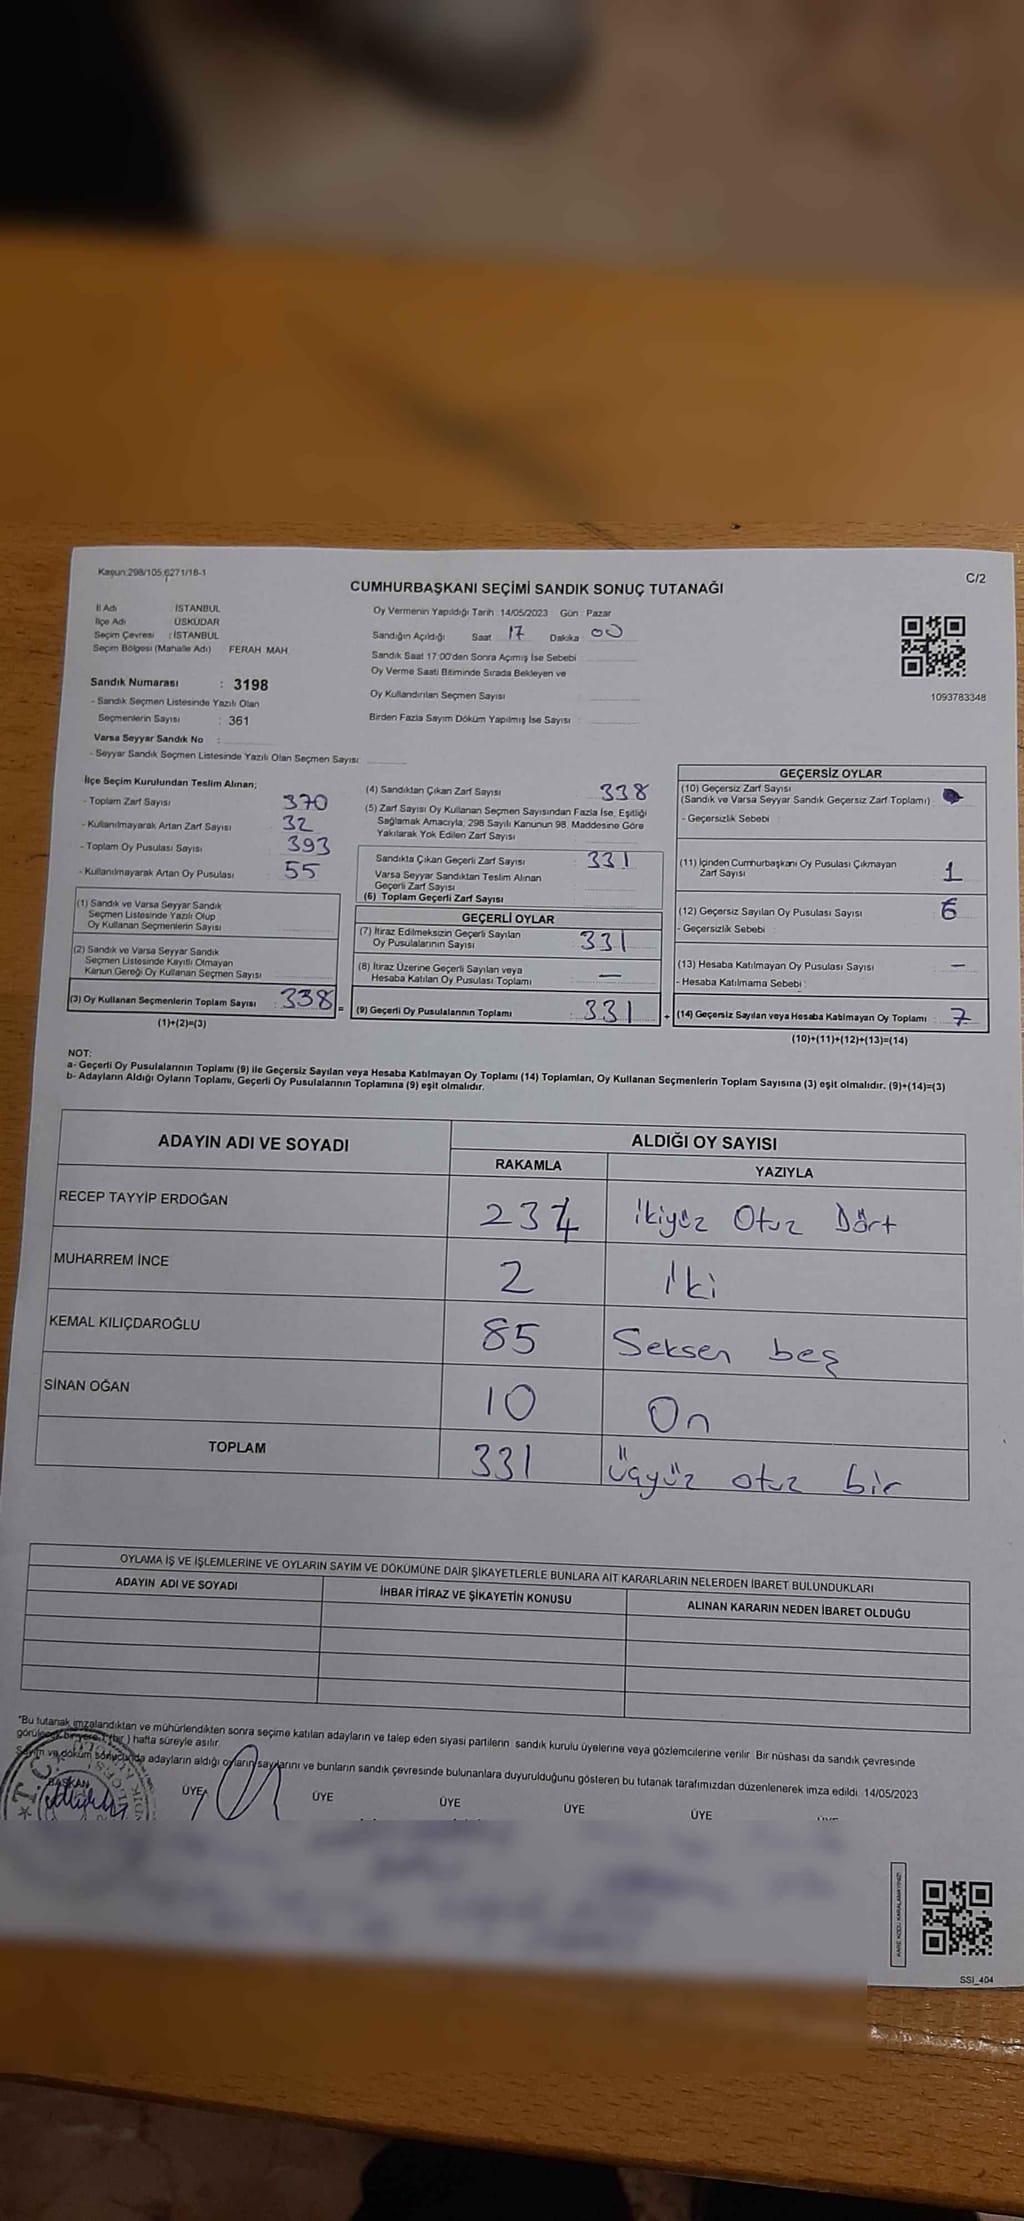 Kanun:298/105,6271/18-1
C/2
CUMHURBAŞKANI SEÇİMİ SANDIK SONUÇ TUTANAĞI
İl Adı : İSTANBUL
İlçe Adı : ÜSKÜDAR
Seçim Çevresi : İSTANBUL
Seçim Bölgesi (Mahalle Adı) FERAH MAH.
Sandık Numarası : 3198
- Sandık Seçmen Listesinde Yazılı Olan
Seçmenlerin Sayısı : 361
Varsa Seyyar Sandık No :
- Seyyar Sandık Seçmen Listesinde Yazılı Olan Seçmen Sayısı:
Oy Vermenin Yapıldığı Tarih : 14/05/2023 Gün : Pazar
Sandığın Açıldığı Saat 17 Dakika 00
Sandık Saat 17:00'den Sonra Açımış İse Sebebi :
Oy Verme Saati Bitiminde Sırada Bekleyen ve
Oy Kullandırılan Seçmen Sayısı :
Birden Fazla Sayım Döküm Yapılmış İse Sayısı :
1093783348
İlçe Seçim Kurulundan Teslim Alınan;
- Toplam Zarf Sayısı 370
- Kullanılmayarak Artan Zarf Sayısı 32
- Toplam Oy Pusulası Sayısı 393
- Kullanılmayarak Artan Oy Pusulası 55
(1) Sandık ve Varsa Seyyar Sandık
Seçmen Listesinde Yazılı Olup
Oy Kullanan Seçmenlerin Sayısı
(2) Sandık ve Varsa Seyyar Sandık
Seçmen Listesinde Kayıtlı Olmayan
Kanun Gereği Oy Kullanan Seçmen Sayısı
(3) Oy Kullanan Seçmenlerin Toplam Sayısı : 338 =
(1)+(2)=(3)
(4) Sandıktan Çıkan Zarf Sayısı 338
(5) Zarf Sayısı Oy Kullanan Seçmen Sayısından Fazla İse, Eşitliği
Sağlamak Amacıyla, 298 Sayılı Kanunun 98. Maddesine Göre
Yakılarak Yok Edilen Zarf Sayısı
Sandıkta Çıkan Geçerli Zarf Sayısı : 331
Varsa Seyyar Sandıktan Teslim Alınan
Geçerli Zarf Sayısı
(6) Toplam Geçerli Zarf Sayısı
GEÇERLİ OYLAR
(7) İtiraz Edilmeksizin Geçerli Sayılan
Oy Pusulalarının Sayısı : 331
(8) İtiraz Üzerine Geçerli Sayılan veya
Hesaba Katılan Oy Pusulası Toplamı : —
(9) Geçerli Oy Pusulalarının Toplamı : 331 +
GEÇERSİZ OYLAR
(10) Geçersiz Zarf Sayısı
(Sandık ve Varsa Seyyar Sandık Geçersiz Zarf Toplamı) :
- Geçersizlik Sebebi :
(11) İçinden Cumhurbaşkanı Oy Pusulası Çıkmayan
Zarf Sayısı 1
(12) Geçersiz Sayılan Oy Pusulası Sayısı : 6
- Geçersizlik Sebebi :
(13) Hesaba Katılmayan Oy Pusulası Sayısı : —
- Hesaba Katılmama Sebebi :
(14) Geçersiz Sayılan veya Hesaba Katılmayan Oy Toplamı : 7
(10)+(11)+(12)+(13)=(14)
NOT:
a- Geçerli Oy Pusulalarının Toplamı (9) ile Geçersiz Sayılan veya Hesaba Katılmayan Oy Toplamı (14) Toplamları, Oy Kullanan Seçmenlerin Toplam Sayısına (3) eşit olmalıdır. (9)+(14)=(3)
b- Adayların Aldığı Oyların Toplamı, Geçerli Oy Pusulalarının Toplamına (9) eşit olmalıdır.
ADAYIN ADI VE SOYADI
ALDIĞI OY SAYISI
RAKAMLA
YAZIYLA
RECEP TAYYİP ERDOĞAN 234 ikiyüz Otuz Dört
MUHARREM İNCE 2 iki
KEMAL KILIÇDAROĞLU 85 Seksen beş
SİNAN OĞAN 10 On
TOPLAM 331 üçyüz otuz bir
OYLAMA İŞ VE İŞLEMLERİNE VE OYLARIN SAYIM VE DÖKÜMÜNE DAİR ŞİKAYETLERLE BUNLARA AİT KARARLARIN NELERDEN İBARET BULUNDUKLARI
ADAYIN ADI VE SOYADI
İHBAR İTİRAZ VE ŞİKAYETİN KONUSU
ALINAN KARARIN NEDEN İBARET OLDUĞU
*Bu tutanak imzalandıktan ve mühürlendikten sonra seçime katılan adayların ve talep eden siyasi partilerin sandık kurulu üyelerine veya gözlemcilerine verilir. Bir nüshası da sandık çevresinde
görülecek bir yere 1 (bir) hafta süreyle asılır.
Sayım ve döküm sonucunda adayların aldığı oyların sayılarını ve bunların sandık çevresinde bulunanlara duyurulduğunu gösteren bu tutanak tarafımızdan düzenlenerek imza edildi. 14/05/2023
BAŞKAN ÜYE ÜYE ÜYE ÜYE ÜYE
T.C.
KARE KODU KARALAMAYINIZ!
SSİ_404